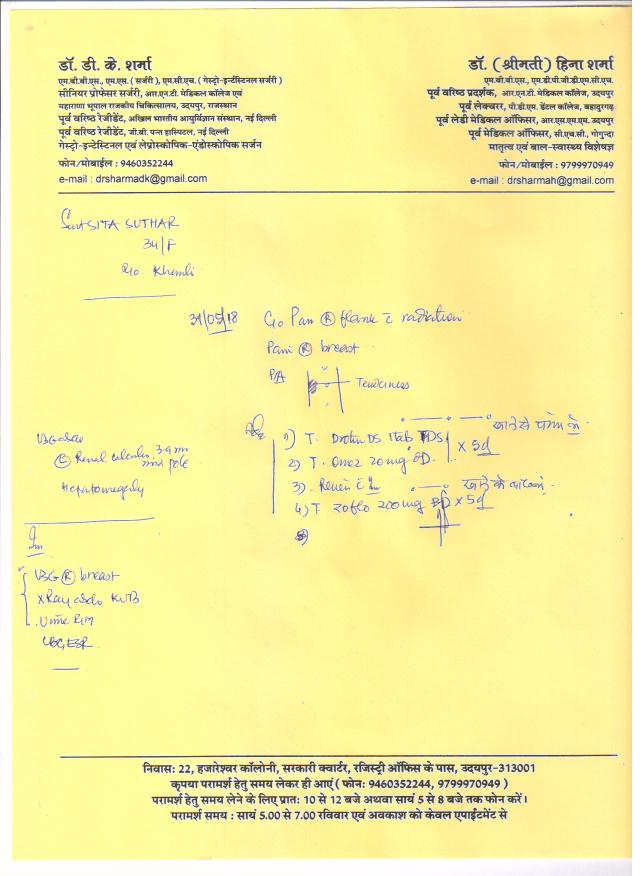 डॉ. डी. के. शर्मा
एम.बी.बी.एस., एम.एस. ( सर्जरी ), एम.सी.एच. ( गेस्ट्रो-इन्टेंस्टिनल सर्जरी )
सीनियर प्रोफेसर सर्जरी, आर.एन.टी. मेडिकल कॉलेज एवं
महाराणा भूपाल राजकीय चिकित्सालय, उदयपुर, राजस्थान
पूर्व वरिष्ठ रेजीडेंट, अखिल भारतीय आयुर्विज्ञान संस्थान, नई दिल्ली
पूर्व वरिष्ठ रेजीडेंट, जी.बी. पन्त हास्पिटल, नई दिल्ली
गेस्ट्रो-इन्टेस्टिनल एवं लेप्रोस्कोपिक-एंडोस्कोपिक सर्जन
फोन/मोबाईल : 9460352244
e-mail : drsharmadk@gmail.com
डॉ. (श्रीमती) हिना शर्मा
एम.बी.बी.एस., एम.डी.पी.जी.डी.एम.सी.एच.
पूर्व वरिष्ठ प्रदर्शक, आर.एन.टी. मेडिकल कॉलेज, उदयपुर
पूर्व लेक्चरर, पी.डी.एम. डेंटल कॉलेज, बहादुरगढ़
पूर्व लेडी मेडिकल ऑफिसर, आर.एस.एम.एम. उदयपुर
पूर्व मेडिकल ऑफिसर, सी.एच.सी., गोगुन्दा
मातृत्व एवं बाल-स्वास्थ्य विशेषज्ञ
फोन/मोबाईल : 9799970949
e-mail : drsharmah@gmail.com
Smt SITA SUTHAR
34/F
R/o Khemli
31/05/18 C/o Pain Ⓡ flank c̄ radiation
Pain Ⓡ breast
P/A Tenderness
1) T. Drotin DS 1tab TDS
2) T. Omez 20mg OD. x 5d
3)
4) T zoflo 200mg BD x 5d
USG abdo
Renal calculus 3-9 mm mid pole
Hepatomegaly
USG Ⓡ breast
X Ray abdo KUB
Urine R/M
CBC, ESR
निवास: 22, हजारेश्वर कॉलोनी, सरकारी क्वार्टर, रजिस्ट्री ऑफिस के पास, उदयपुर-313001
कृपया परामर्श हेतु समय लेकर ही आएं ( फोन: 9460352244, 9799970949 )
परामर्श हेतु समय लेने के लिए प्रात: 10 से 12 बजे अथवा सायं 5 से 8 बजे तक फोन करें।
परामर्श समय : सायं 5.00 से 7.00 रविवार एवं अवकाश को केवल एपाईंटमेंट से